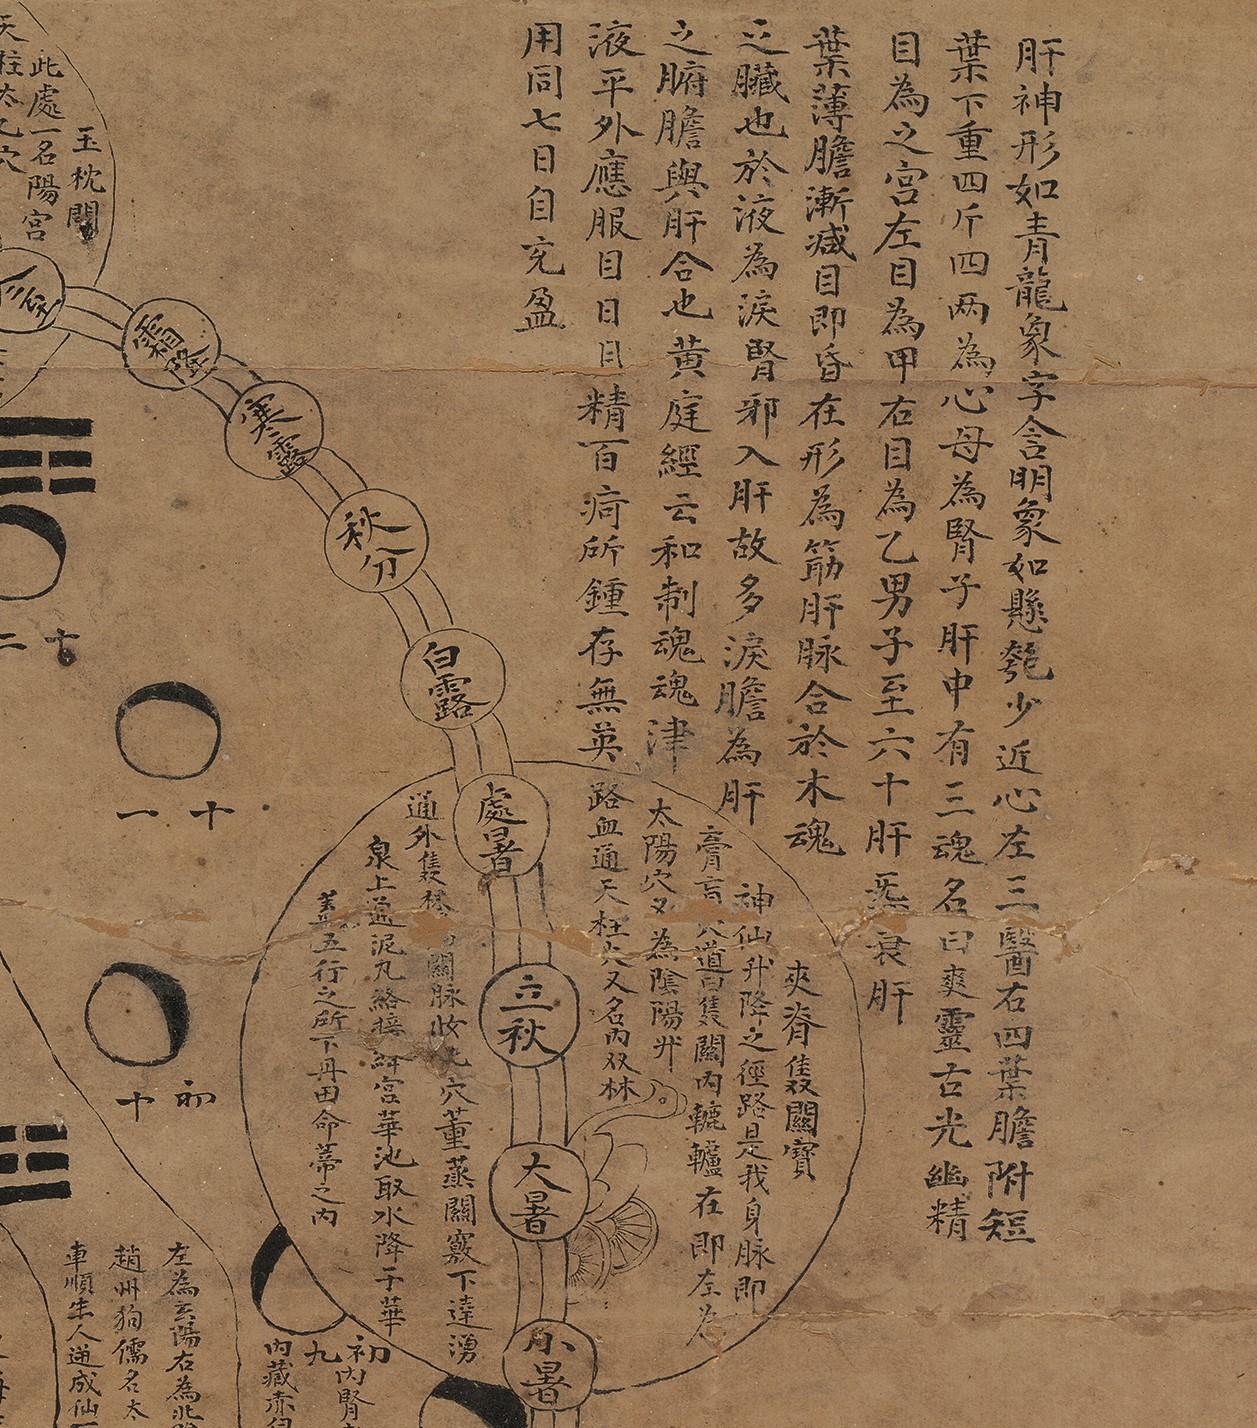 肝神形如青龍象字含明象如懸匏少近心左三醫右四葉膽附短
葉下重四斤四两為心母為腎子肝中有三魂名曰爽靈古光幽精
目為之宮左目為甲右目為乙男子至六十肝炁衰肝
葉薄膽漸減目即昏在形為筋肝脉合於木魂
之臟也於液為淚腎邪入肝故多淚膽為肝
之腑膽與肝合也黄庭經云和制魂魂津
液平外應服目日月精百疴所鍾存無英
用同七日自充盈
夾脊雙關寶
神仙升降之徑路是我身脉即
膏肓穴道雙關内轆轤在即左為
太陽穴又為陰陽升
路血通天柱穴又名内双林
處暑
立秋
大暑
小暑
通外雙林
關脉
穴薰蒸關竅下達湧
泉上通泥丸絡接絳宮華池取水降于華
盖五行之所下丹田命蒂之内
白露
秋分
寒露
霜降
玉枕關
此處一名陽宮
天柱太乙穴
十一
初十
初九
内腎
内藏赤
左為玄陽右為
趙州狗儒名太
車順牛人通成仙